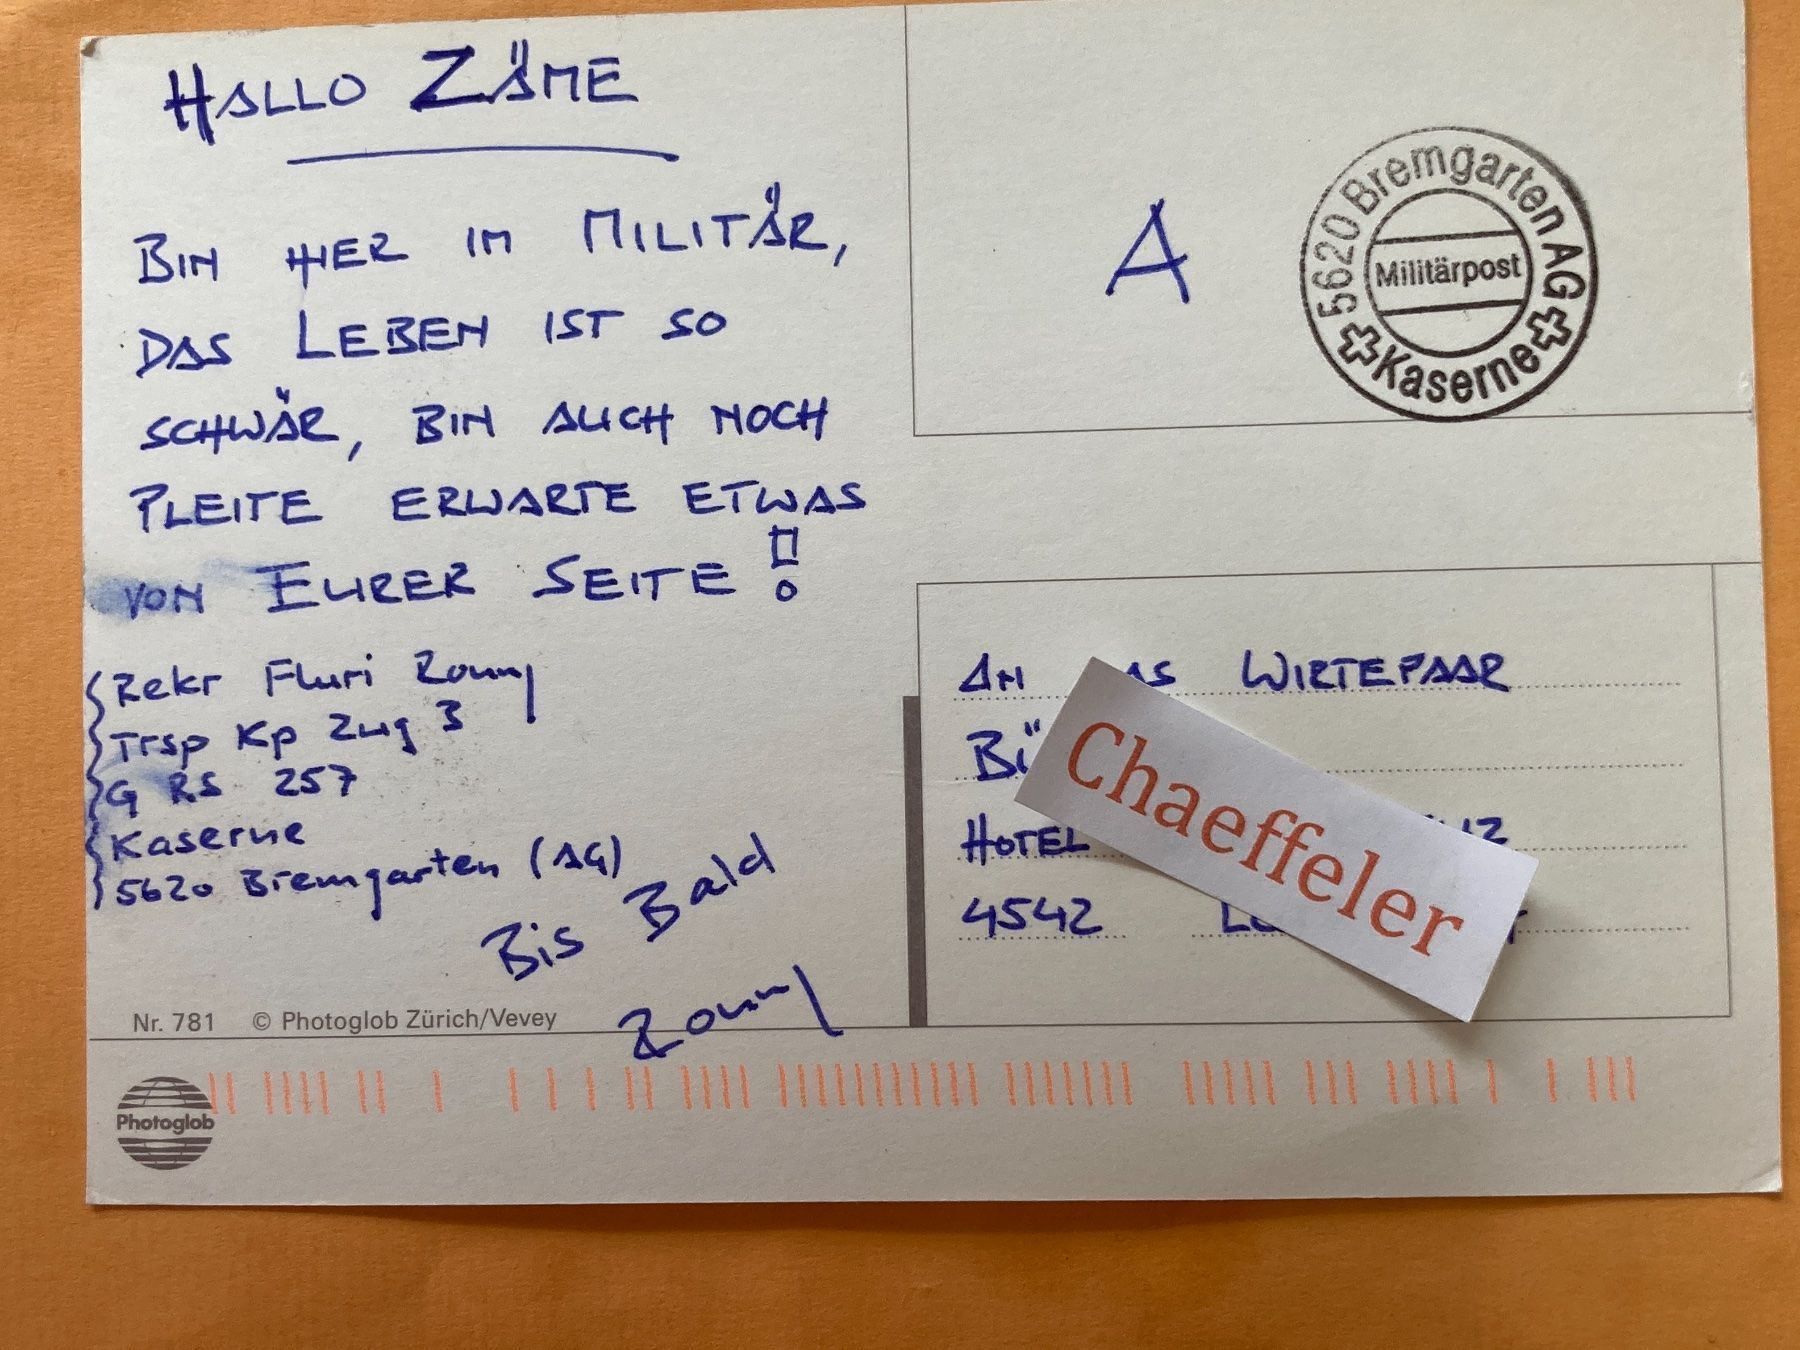 HALLO ZÄME
BIN HIER IM MILITÄR,
DAS LEBEN IST SO
SCHWÄR, BIN AUCH NOCH
PLEITE ERWARTE ETWAS
VON EURER SEITE!
Rekr Fluri Ronny
Trsp Kp Zug 3
G RS 257
Kaserne
5620 Bremgarten (AG)
Bis Bald
Ronny
Nr. 781 © Photoglob Zürich/Vevey
Photoglob
A
5620 Bremgarten AG
Militärpost
Kaserne
AN WIRTEPAAR
Chaeffeler
HOTEL
4542